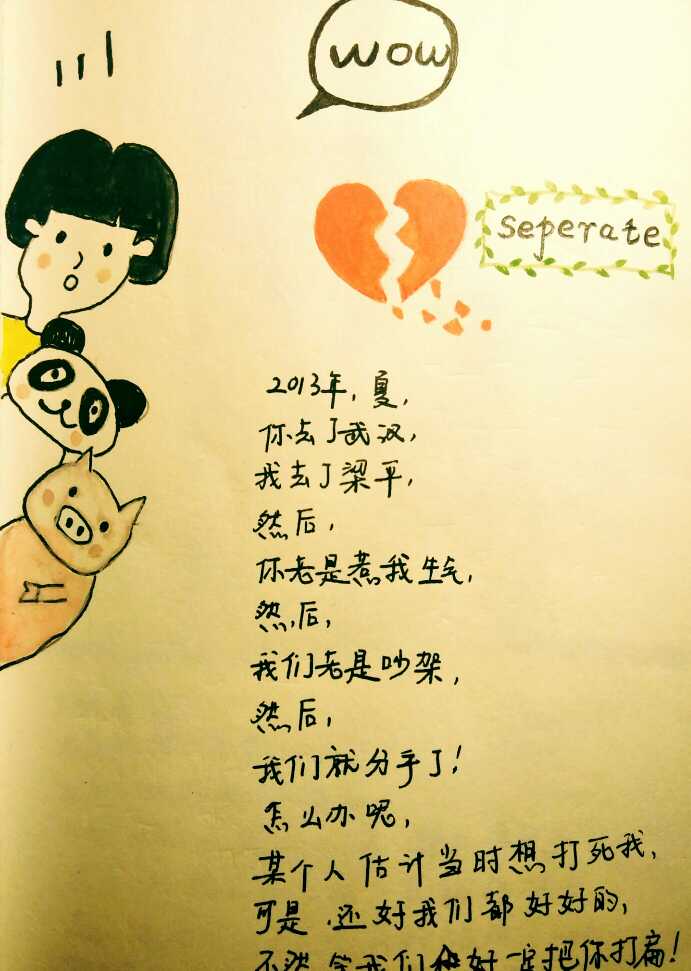 wow
seperate
2013年，夏，
你去了武汉，
我去了梁平，
然后，
你老是惹我生气，
然后，
我们老是吵架，
然后，
我们就分手了！
怎么办呢，
某个人估计当时想打死我，
可是，还好我们都好好的，
不然 我们 好一定把你打扁！